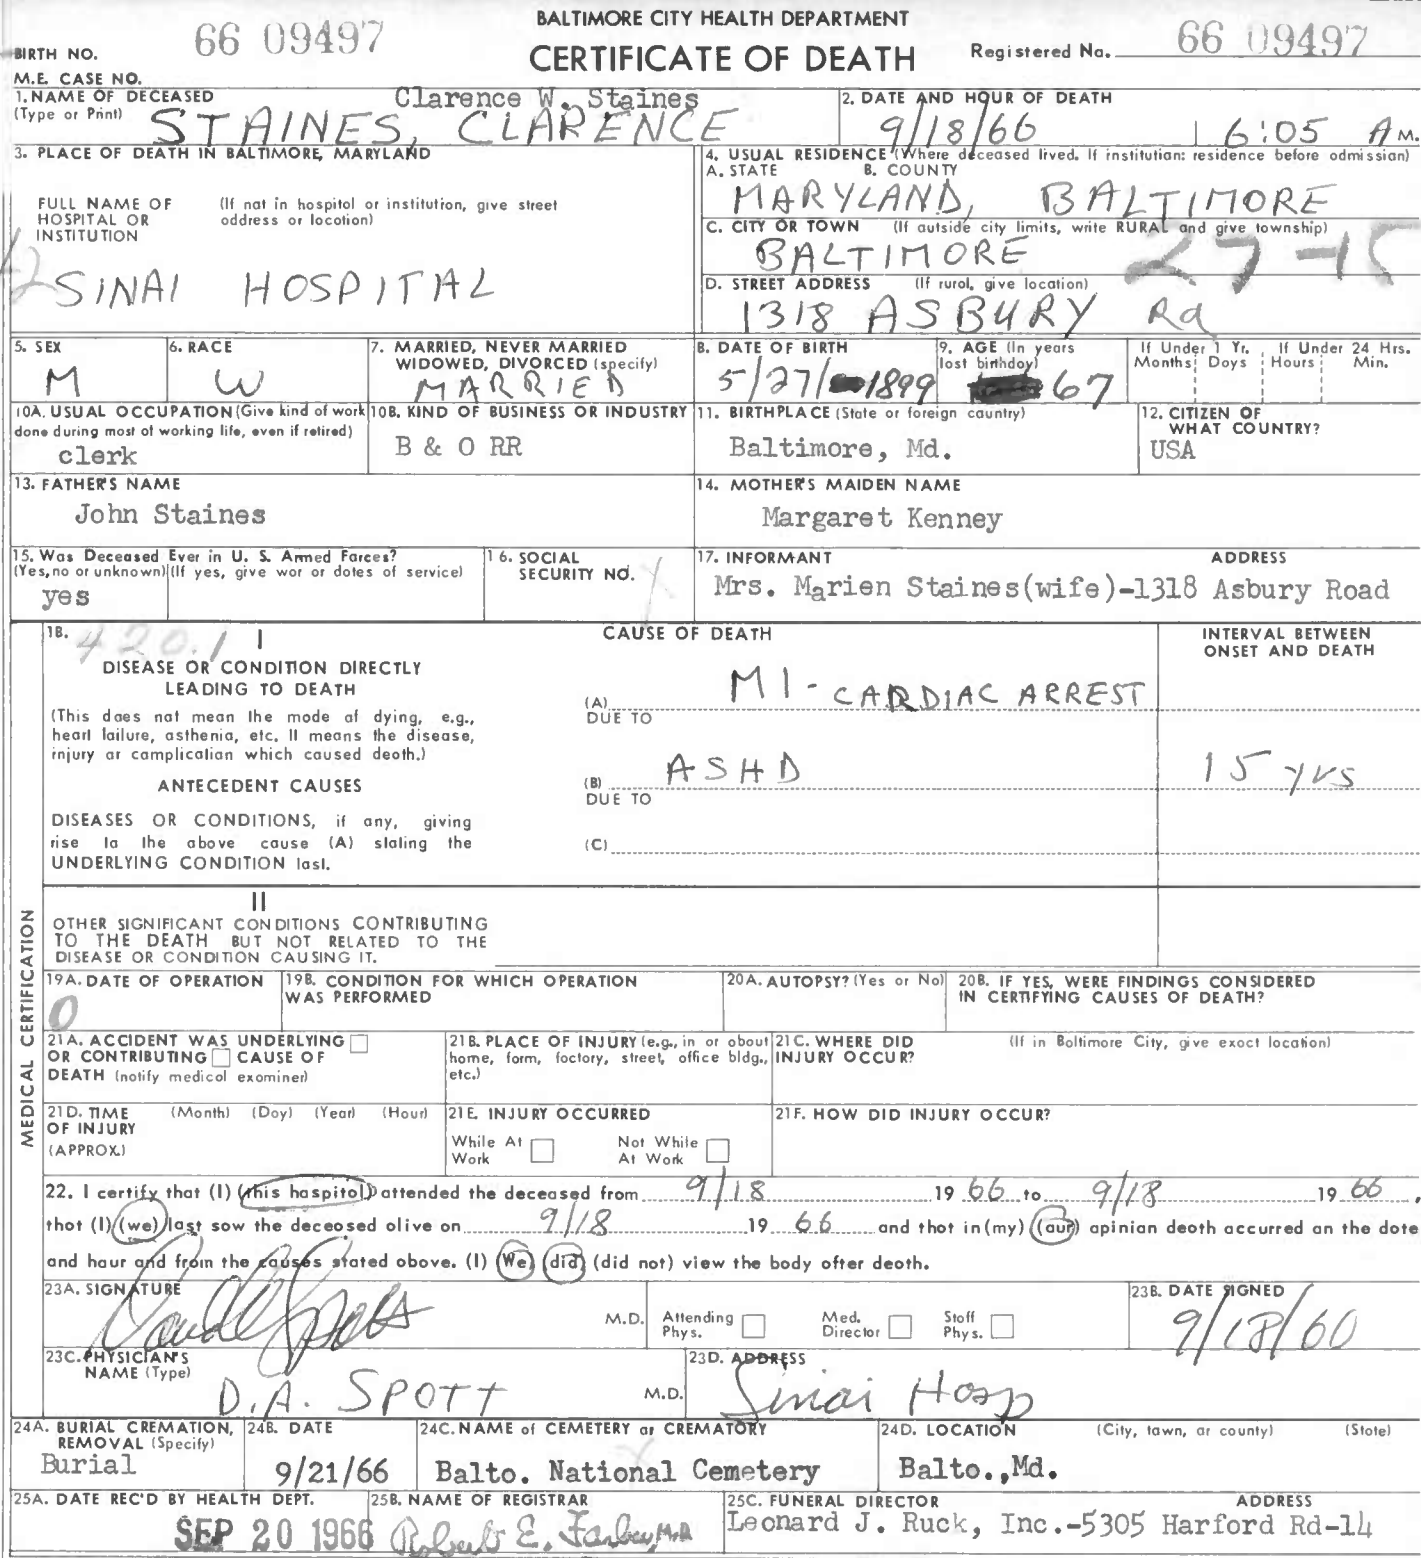 BALTIMORE CITY HEALTH DEPARTMENT
BIRTH NO. 66 09497 CERTIFICATE OF DEATH Registered No. 66 09497
M.E. CASE NO.
1. NAME OF DECEASED Clarence W. Staines
(Type or Print) STAINES, CLARENCE
2. DATE AND HOUR OF DEATH
9/18/66 6:05 A M.
3. PLACE OF DEATH IN BALTIMORE, MARYLAND
FULL NAME OF HOSPITAL OR INSTITUTION (If not in hospital or institution, give street address or location)
SINAI HOSPITAL
4. USUAL RESIDENCE (Where deceased lived. If institution: residence before admission)
A. STATE B. COUNTY
MARYLAND, BALTIMORE
C. CITY OR TOWN (If outside city limits, write RURAL and give township)
BALTIMORE 27-15
D. STREET ADDRESS (If rural, give location)
1318 ASBURY Rd
5. SEX
M
6. RACE
W
7. MARRIED, NEVER MARRIED
WIDOWED, DIVORCED (specify)
MARRIED
8. DATE OF BIRTH
5/27/1899
9. AGE (In years
last birthday)
67
If Under 1 Yr. If Under 24 Hrs.
Months Days Hours Min.
10A. USUAL OCCUPATION (Give kind of work
done during most of working life, even if retired)
clerk
10B. KIND OF BUSINESS OR INDUSTRY
B & O RR
11. BIRTHPLACE (State or foreign country)
Baltimore, Md.
12. CITIZEN OF
WHAT COUNTRY?
USA
13. FATHER'S NAME
John Staines
14. MOTHER'S MAIDEN NAME
Margaret Kenney
15. Was Deceased Ever in U. S. Armed Forces?
(Yes, no or unknown) (If yes, give war or dates of service)
yes
16. SOCIAL
SECURITY NO.
17. INFORMANT ADDRESS
Mrs. Marien Staines(wife)-1318 Asbury Road
MEDICAL CERTIFICATION
18. 420.1 I
CAUSE OF DEATH
INTERVAL BETWEEN
ONSET AND DEATH
DISEASE OR CONDITION DIRECTLY
LEADING TO DEATH
(This does not mean the mode of dying, e.g.,
heart failure, asthenia, etc. It means the disease,
injury or complication which caused death.)
ANTECEDENT CAUSES
DISEASES OR CONDITIONS, if any, giving
rise to the above cause (A) stating the
UNDERLYING CONDITION last.
(A) MI - CARDIAC ARREST
DUE TO
(B) ASHD 15 yrs
DUE TO
(C)
II
OTHER SIGNIFICANT CONDITIONS CONTRIBUTING
TO THE DEATH BUT NOT RELATED TO THE
DISEASE OR CONDITION CAUSING IT.
19A. DATE OF OPERATION
0
19B. CONDITION FOR WHICH OPERATION
WAS PERFORMED
20A. AUTOPSY? (Yes or No)
20B. IF YES, WERE FINDINGS CONSIDERED
IN CERTIFYING CAUSES OF DEATH?
21A. ACCIDENT WAS UNDERLYING
OR CONTRIBUTING CAUSE OF
DEATH (notify medical examiner)
21B. PLACE OF INJURY (e.g., in or about
home, farm, factory, street, office bldg.,
etc.)
21C. WHERE DID (If in Baltimore City, give exact location)
INJURY OCCUR?
21D. TIME (Month) (Day) (Year) (Hour)
OF INJURY
(APPROX.)
21E. INJURY OCCURRED
While At Work Not While At Work
21F. HOW DID INJURY OCCUR?
22. I certify that (I) (this hospital) attended the deceased from 9/18 19 66 to 9/18 19 66,
that (I) (we) last saw the deceased alive on 9/18 19 66 and that in (my) (our) opinian death accurred an the date
and hour and from the causes stated above. (I) (We) (did) (did not) view the body after death.
23A. SIGNATURE
M.D.
Attending Phys. Med. Director Staff Phys.
23B. DATE SIGNED
9/18/60
23C. PHYSICIAN'S
NAME (Type)
D.A. SPOTT M.D.
23D. ADDRESS
Sinai Hosp
24A. BURIAL CREMATION,
REMOVAL (Specify)
Burial
24B. DATE
9/21/66
24C. NAME of CEMETERY or CREMATORY
Balto. National Cemetery
24D. LOCATION (City, town, or county) (State)
Balto.,Md.
25A. DATE REC'D BY HEALTH DEPT.
SEP 20 1966
25B. NAME OF REGISTRAR
Robert E. Farber, M.D.
25C. FUNERAL DIRECTOR ADDRESS
Leonard J. Ruck, Inc.-5305 Harford Rd-14